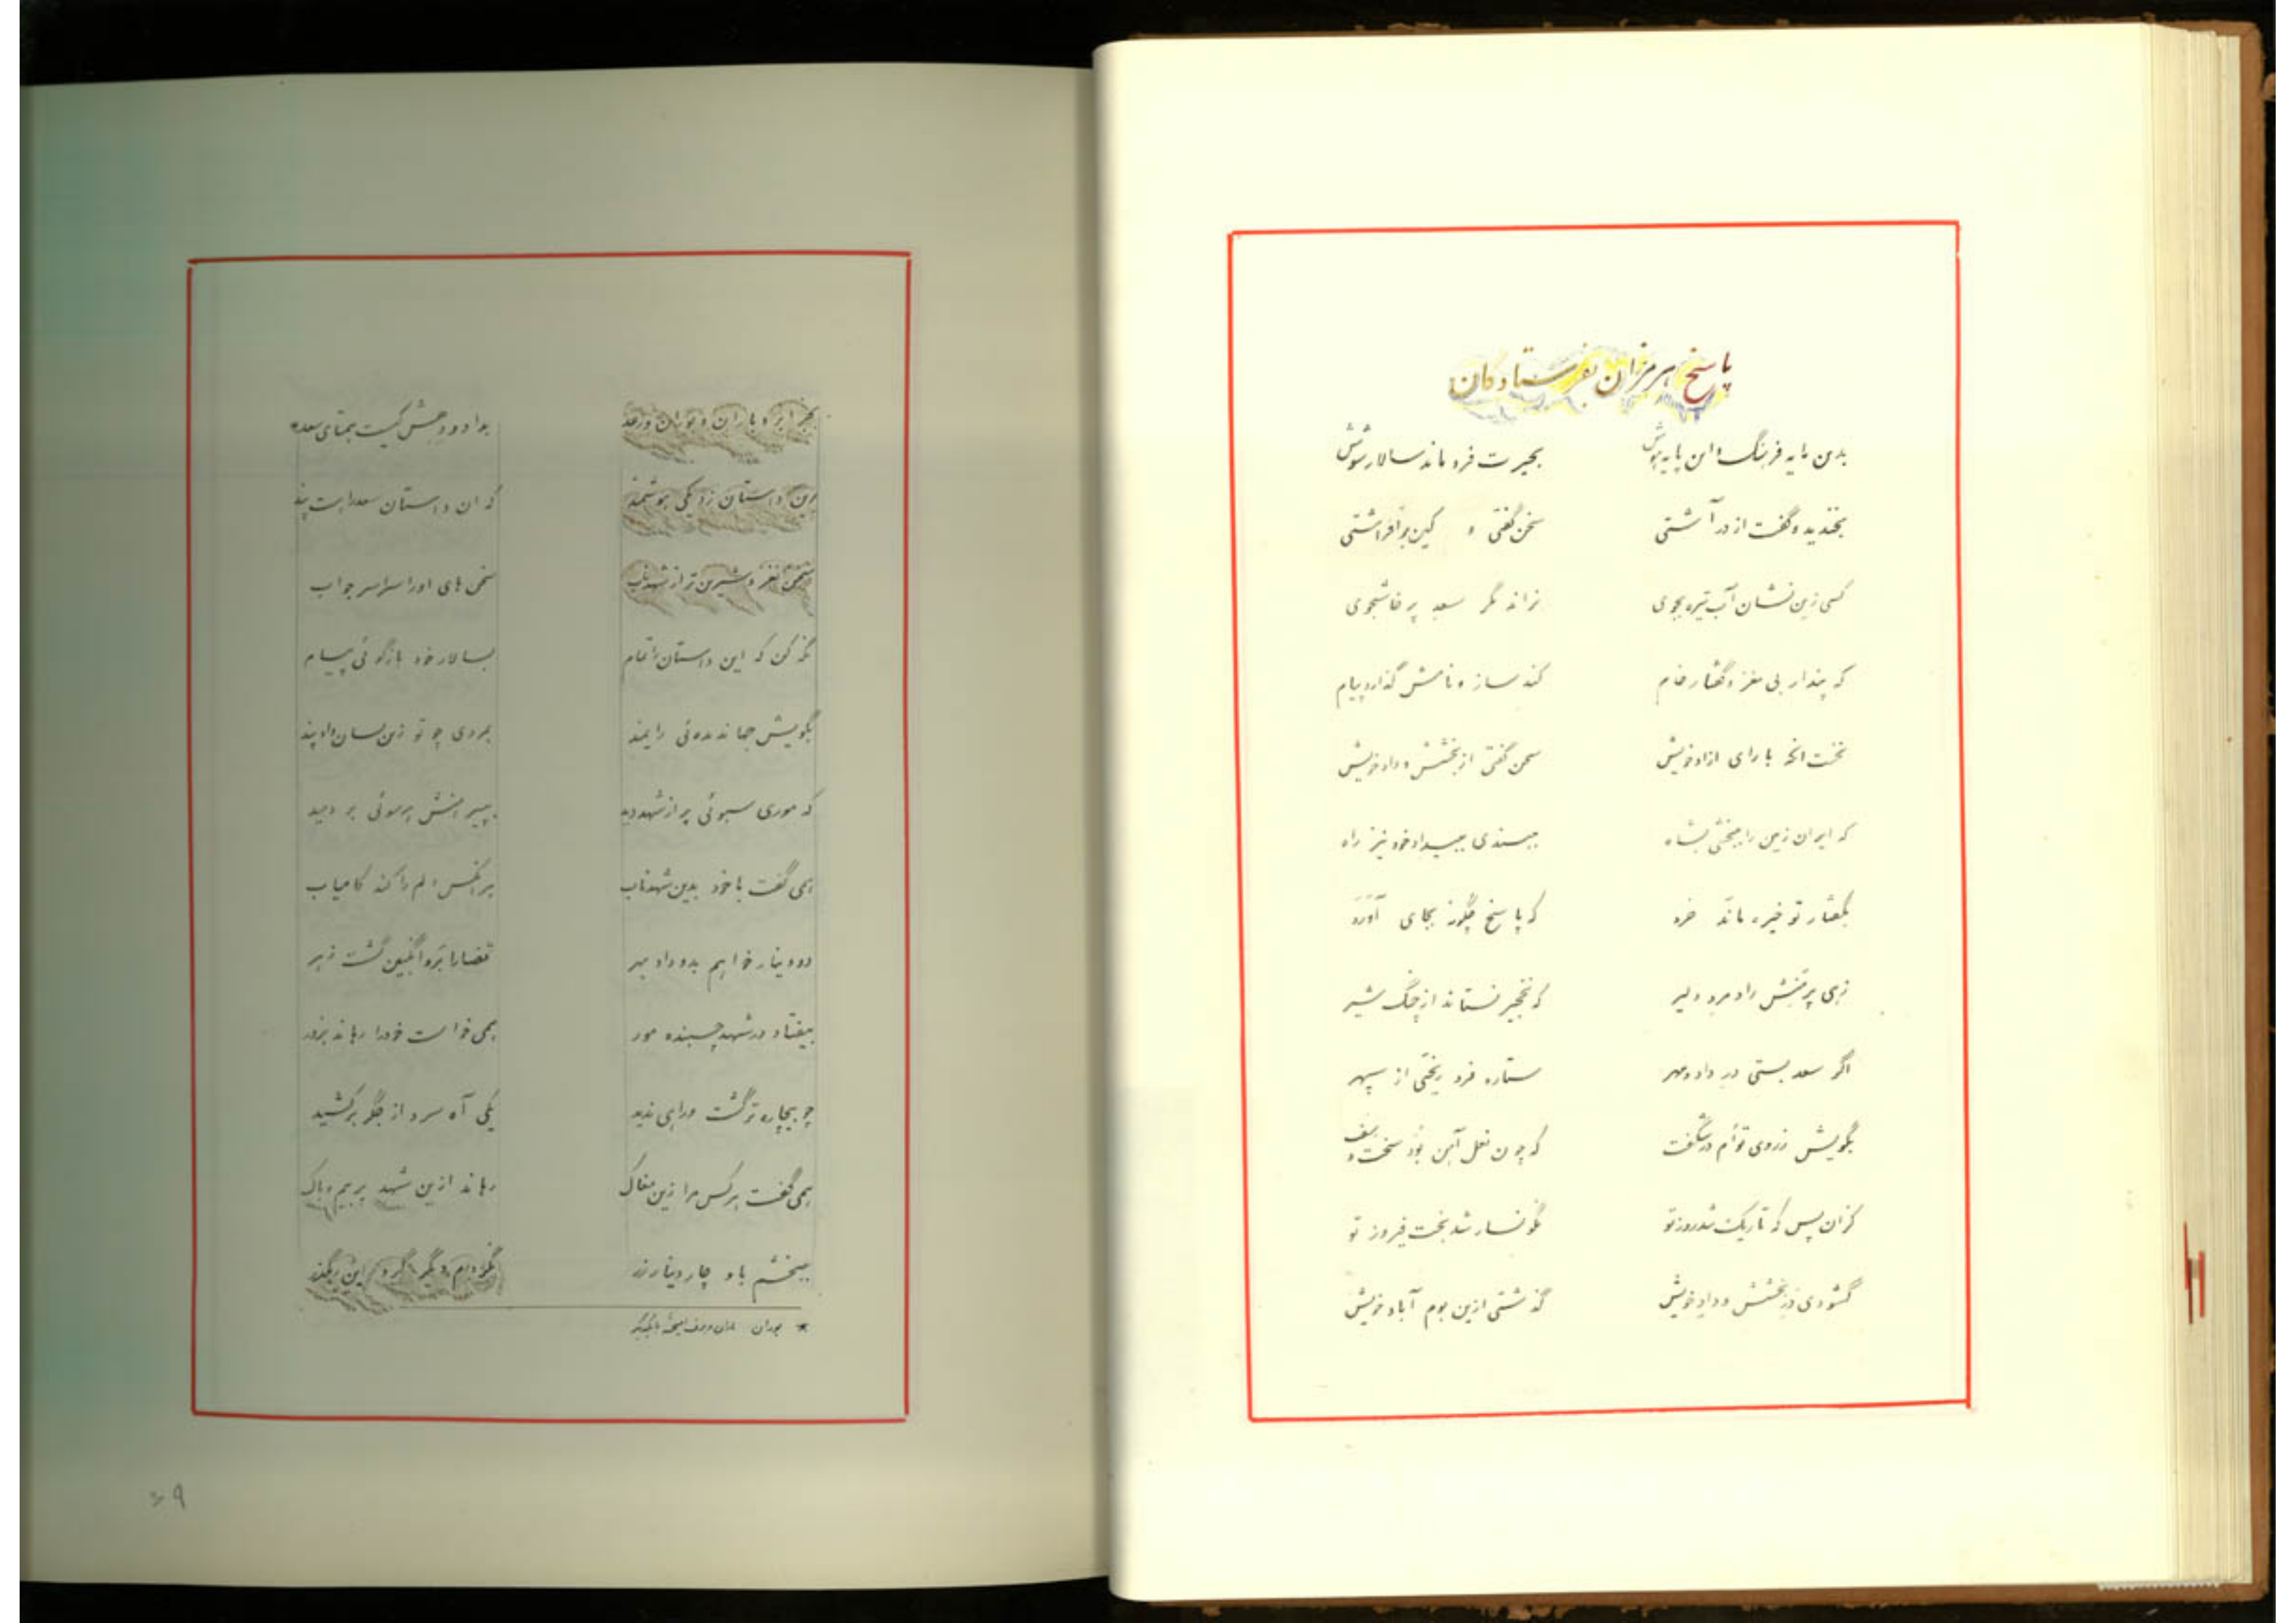 پاسخ هرمزان بفرستادگان
بدین مایه فرهنگ و این پایه هوش بحیرت فرو ماند سالار شوش
بخندید و گفت از در آشتی سخن گفتی و کین برافراشتی
کسی زین نشان آب تیره بجوی نراند مگر سعد پرخاشجوی
که پندار بی مغز و گفتار خام کند ساز و نامش گذارد پیام
نخست انکه با رای ازاد خویش سخن گفتی از بخشش و داد خویش
که ایران زمین را ببخشی بشاه ببندی ببیداد خود نیز راه
بگفتار تو خیره ماند خرد که پاسخ چگونه بجای آورد
زهی پرمنش راد مرد دلیر که نخجیر نستاند از چنگ شیر
اگر سعد بستی در داد و مهر ستاره فرو ریختی از سپهر
بگویش ز روی توأم در شگفت که چون نعل آهن بود سخت و
کزان پس که تاریک شد روز تو نگونسار شد بخت فیروز تو
گشودی در بخشش و داد خویش گذشتی ازین بوم آباد خویش
بجز ابر و باران و بوران و رعد بداد و دهش کیست همتای سعد
برین داستان زد یکی هوشمند که ان داستان سعد راست پند
سخن نغز و شیرین تر از شهد ناب سخن های اورا سراسر جواب
نگه کن که این داستان را تمام بسالار خود بازگوئی پیام
بگویش جهاندیده ئی رایمند بمردی چو تو زین سان داد پند
که موری سبوئی پر از شهد دید بپیرامنش هرسوئی بر دمید
همی گفت با خود بدین شهد ناب هرانکس دلم را کند کامیاب
دو دینار خواهم بدو داد مهر قضارا برو انگبین گشت زهر
بیفتاد در شهد چسبنده مور همی خواست خودرا رهاند بزور
چو بیچاره تر گشت و راهی ندید یکی آه سرد از جگر برکشید
همی گفت هرکس مرا زین مغاک رهاند ازین شهد پر بیم و باک
ببخشم باو چار دینار زر نگردم دیگر گرد این رهگذر
* بوران باران و برف امیخته با یکدیگر